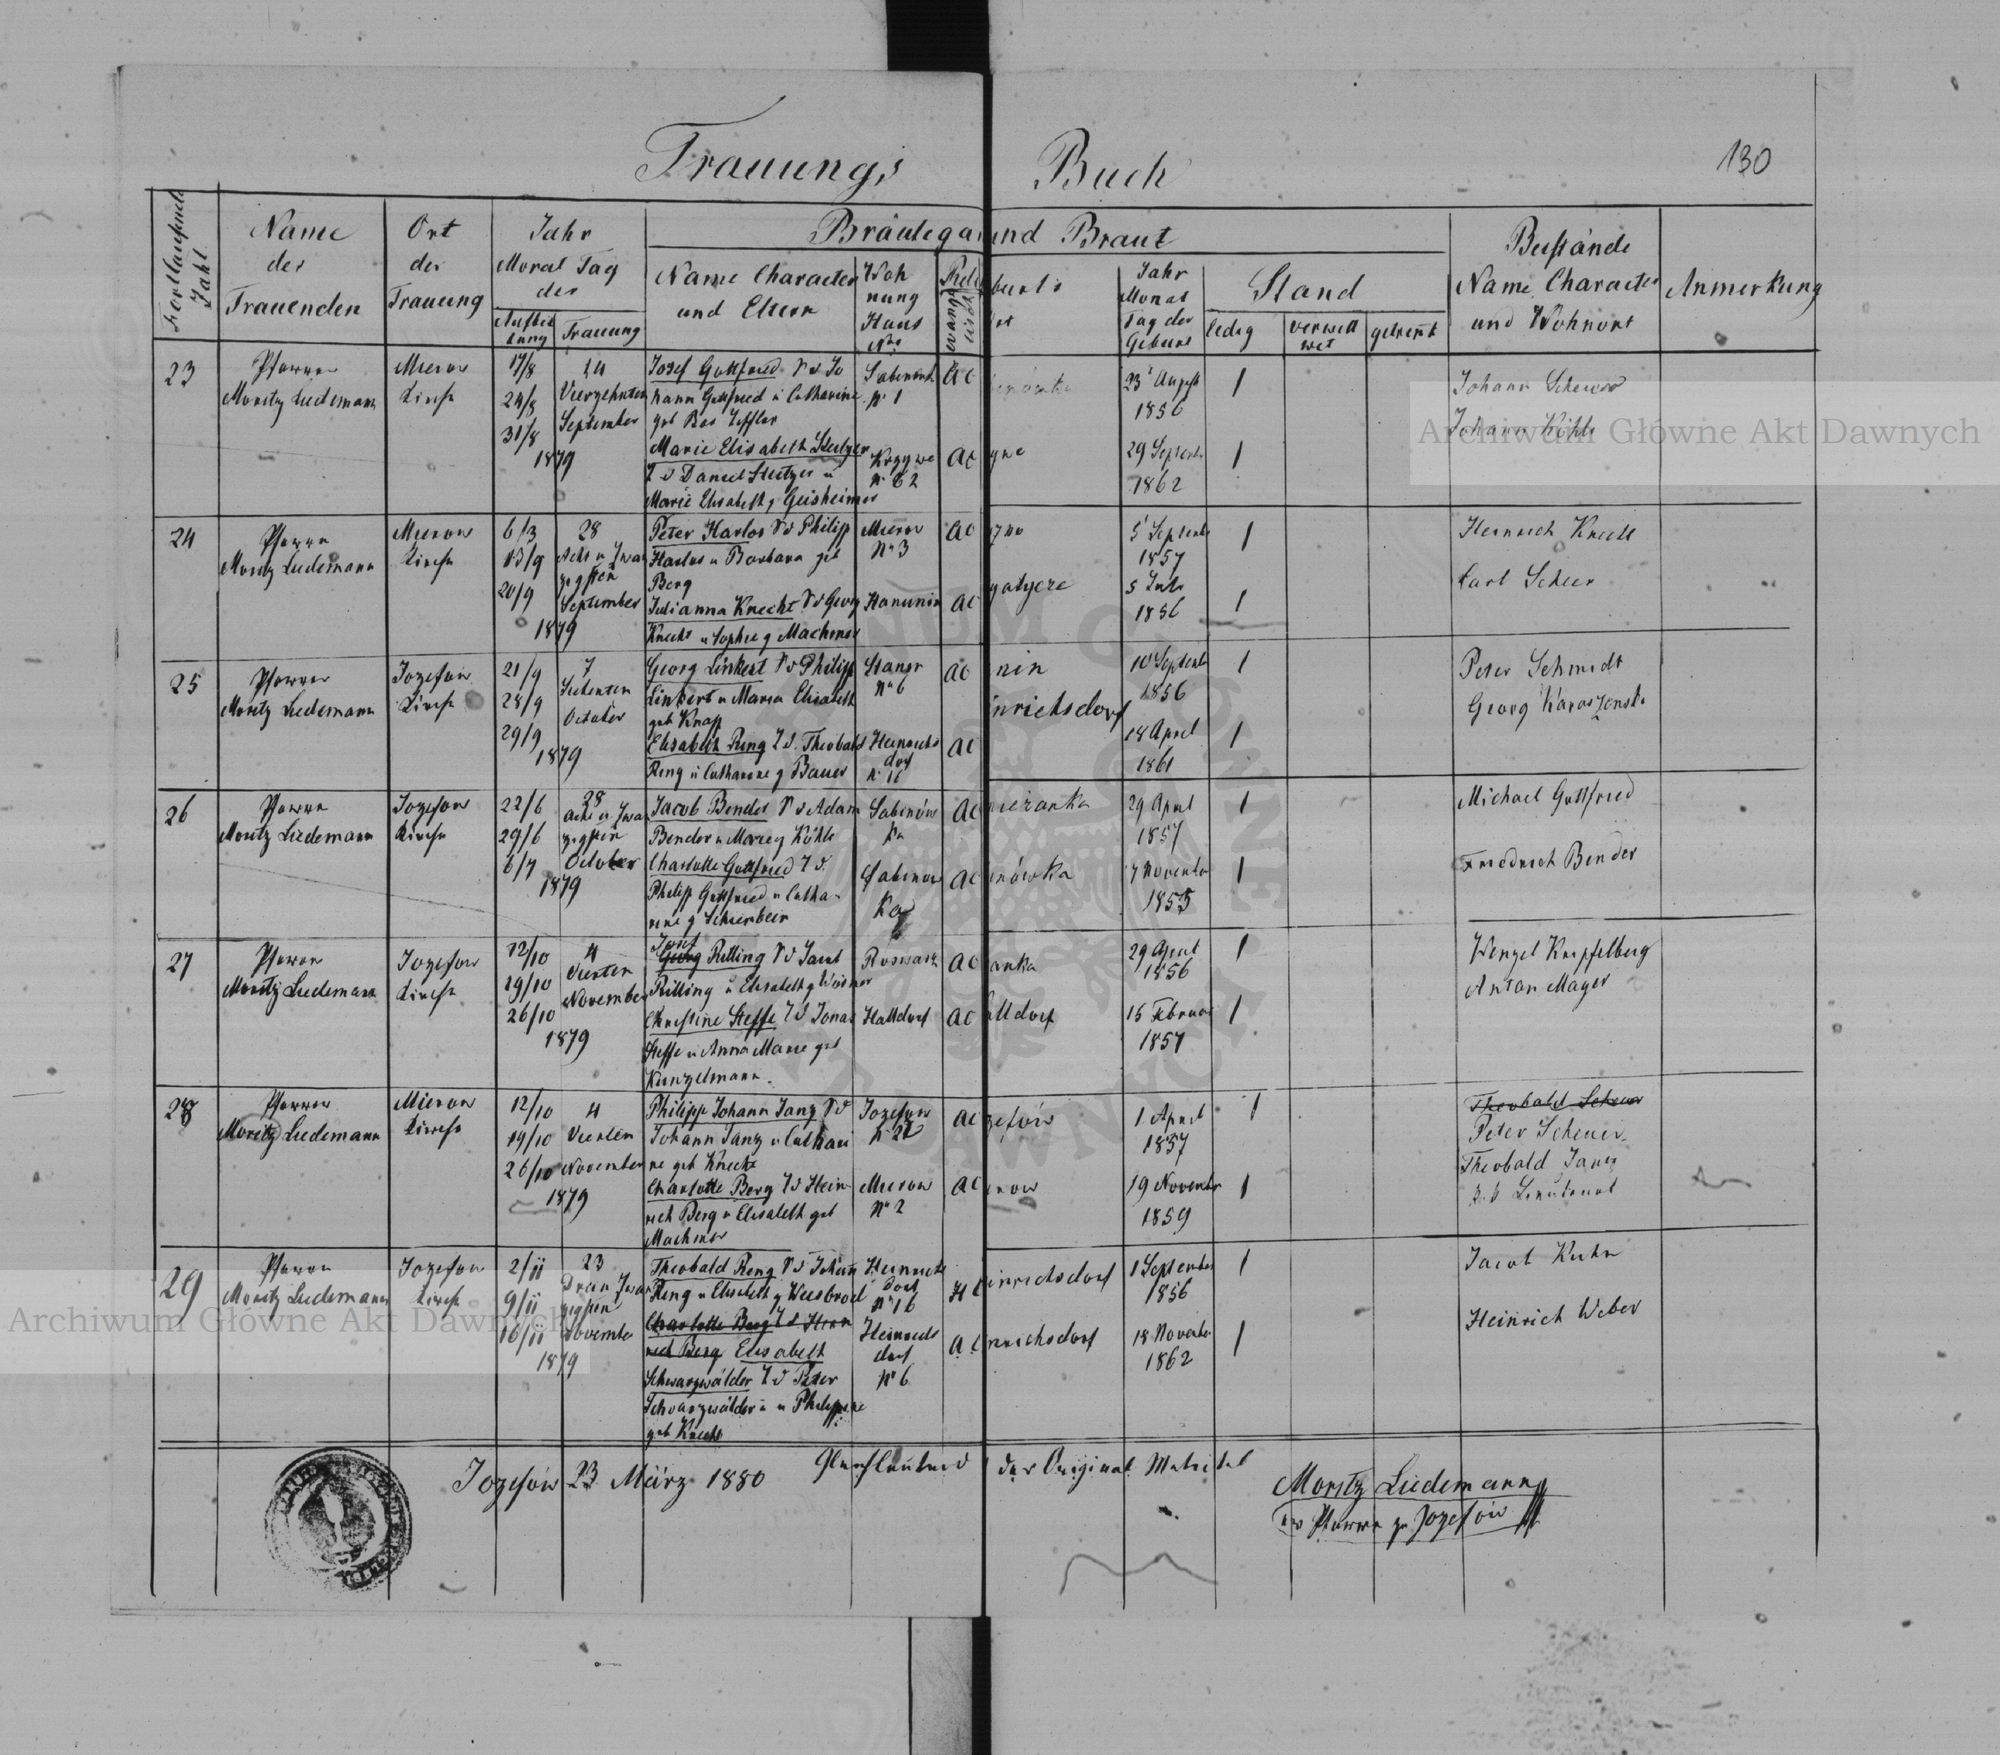 Trauungs Buch
130
Fortlaufende Zahl
Name der Trauenden
Ort der Trauung
Jahr Monat Tag der
Aufbietung
Trauung
Bräutigam und Braut
Name Character und Eltern
Wohnung Haus Nro
Reli
burts
Jahr Monat Tag der Geburt
Stand
ledig
verwittwet
getrennt
Beistände Name Character und Wohnort
Anmerkung
23
Pfarrer
Moritz Liedemann
Mierow
Kirche
17/8
24/8
31/8
14
Vierzehnten
September
1879
Josef Gottfried S d Jo
hann Gottfried u Catharine
geb
Sabinówk
N 1
AC
23 August
1856
1
Johann Scheuer
Johann Köhle
Marie Elisabeth Steitzer
T d Daniel Steitzer u
Marie Elisabeth g Geisheimer
Krzywe
N 62
AC
29 Septemb
1862
1
24
Pfarrer
Moritz Liedemann
Mierow
Kirche
6/3
13/9
20/9
28
Acht u Zwan
zigsten
September
1879
Peter Harlos S d Philipp
Harlos u Barbara geb
Berg
Mierow
No 3
AC
5 Septemb
1857
1
Heinrich Knecht
Carl Scheer
Julianna Knecht T d Georg
Knecht u Sophie g Machmer
Hanunin
AC
5 Juli
1856
1
25
Pfarrer
Moritz Liedemann
Jozefow
Kirche
21/9
28/9
29/9
7
Siebenten
October
1879
Georg Linkert S d Philipp
Linkert u Maria Elisabeth
geb Knap
Stanin
No 6
AC
nin
10 Septemb
1856
1
Peter Schmidt
Georg
Elisabeth Reng T d. Theobald
Reng u Catharine g Bauer
Heinrichs
dorf
N 16
AC
inrichsdorf
18 April
1861
1
26
Pfarrer
Moritz Liedemann
Jozefow
Kirche
22/6
29/6
6/7
28
Acht u Zwan
zigsten
October
1879
Jacob Bender S d Adam
Bender u Marie g Köhle
Sabinów
ka
AC
nieżanka
29 April
1857
1
Michael Gottfried
Friedrich Bender
Charlotte Gottfried T d.
Philipp Gottfried u Catha-
rine g Scheerbein
Sabinow
ka
AC
inówka
7 November
1855
1
27
Pfarrer
Moritz Liedemann
Jozefow
Kirche
12/10
19/10
26/10
4
Vierten
November
1879
Josef
Georg Rilling S d Jacob
Rilling u Elisabeth g Weimer
AC
anka
29 April
1856
1
Wenzel Knipfelberg
Anton Mayer
Christine Steffe T d Jonas
Steffe u Anna Marie geb
Kunzelmann.
Hattdorf
AC
attdorf
15 Februar
1857
1
28
Pfarrer
Moritz Liedemann
Mierow
Kirche
12/10
19/10
26/10
4
Vierten
November
1879
Philipp Johann Janz S d
Johann Janz u Cathari
ne geb Knecht
Jozefow
N 22
AC
zefów
1 April
1857
1
Theobald Scheuer
Peter Scheuer
Theobald Janz
Charlotte Berg T d Hein-
rich Berg u Elisabeth geb
Machmer
Mierow
No 2
AC
row
19 November
1859
1
29
Pfarrer
Moritz Liedemann
Jozefow
Kirche
2/11
9/11
16/11
23
Drei u Zwan
zigsten
November
1879
Theobald Reng S d Johann
Reng u Elisabeth g Weisbrod
Heinrichs
dorf
No 16
AC
inrichsdorf
1 September
1856
1
Jacob Kuhn
Heinrich Weber
Charlotte Berg T d Hein
rich Berg Elisabeth
Schwarzwälder T d Peter
Schwarzwälder u Philippine
geb Knecht
Heinrichs
dorf
No 6
AC
inrichsdorf
18 November
1862
1
Jozefów 23 März 1880 Gleichlautend der Original Matrikel
Moritz Liedemann
ev Pfarrer zu Jozefów
Archiwum Główne Akt Dawnych
Archiwum Główne Akt Dawnych